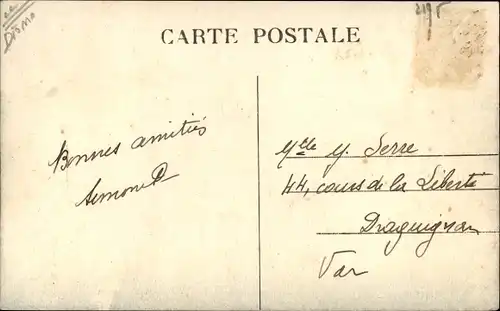 CARTE POSTALE
Bonnes amitiés
Simone
Mlle Y. Serre
44, cours de la Liberté
Draguignan
Var